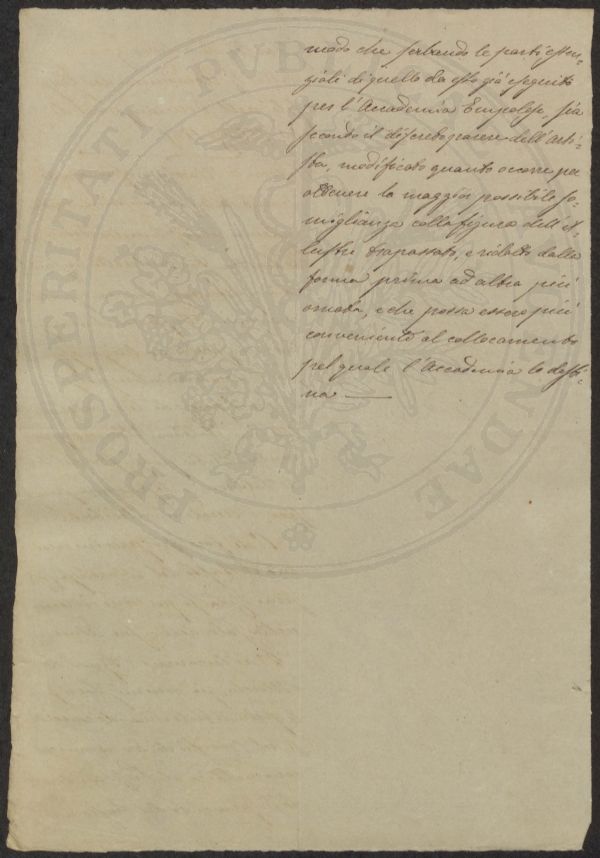 modo che serbando le parti essen-
ziali di quello da esso già eseguito
per l'Accademia Empolese, sia
secondo il discreto parere dell'arti-
sta, modificato quanto occorre per
ottenere la maggior possibile so-
miglianza colla figura dell'il-
lustre trapassato, e ridotto dalla
forma prima ad altra più
ornata, e che possa essere più
conveniente al collocamento
pel quale l'Accademia lo desti-
na —
PROSPERITATI PVBLICAE AVGENDAE